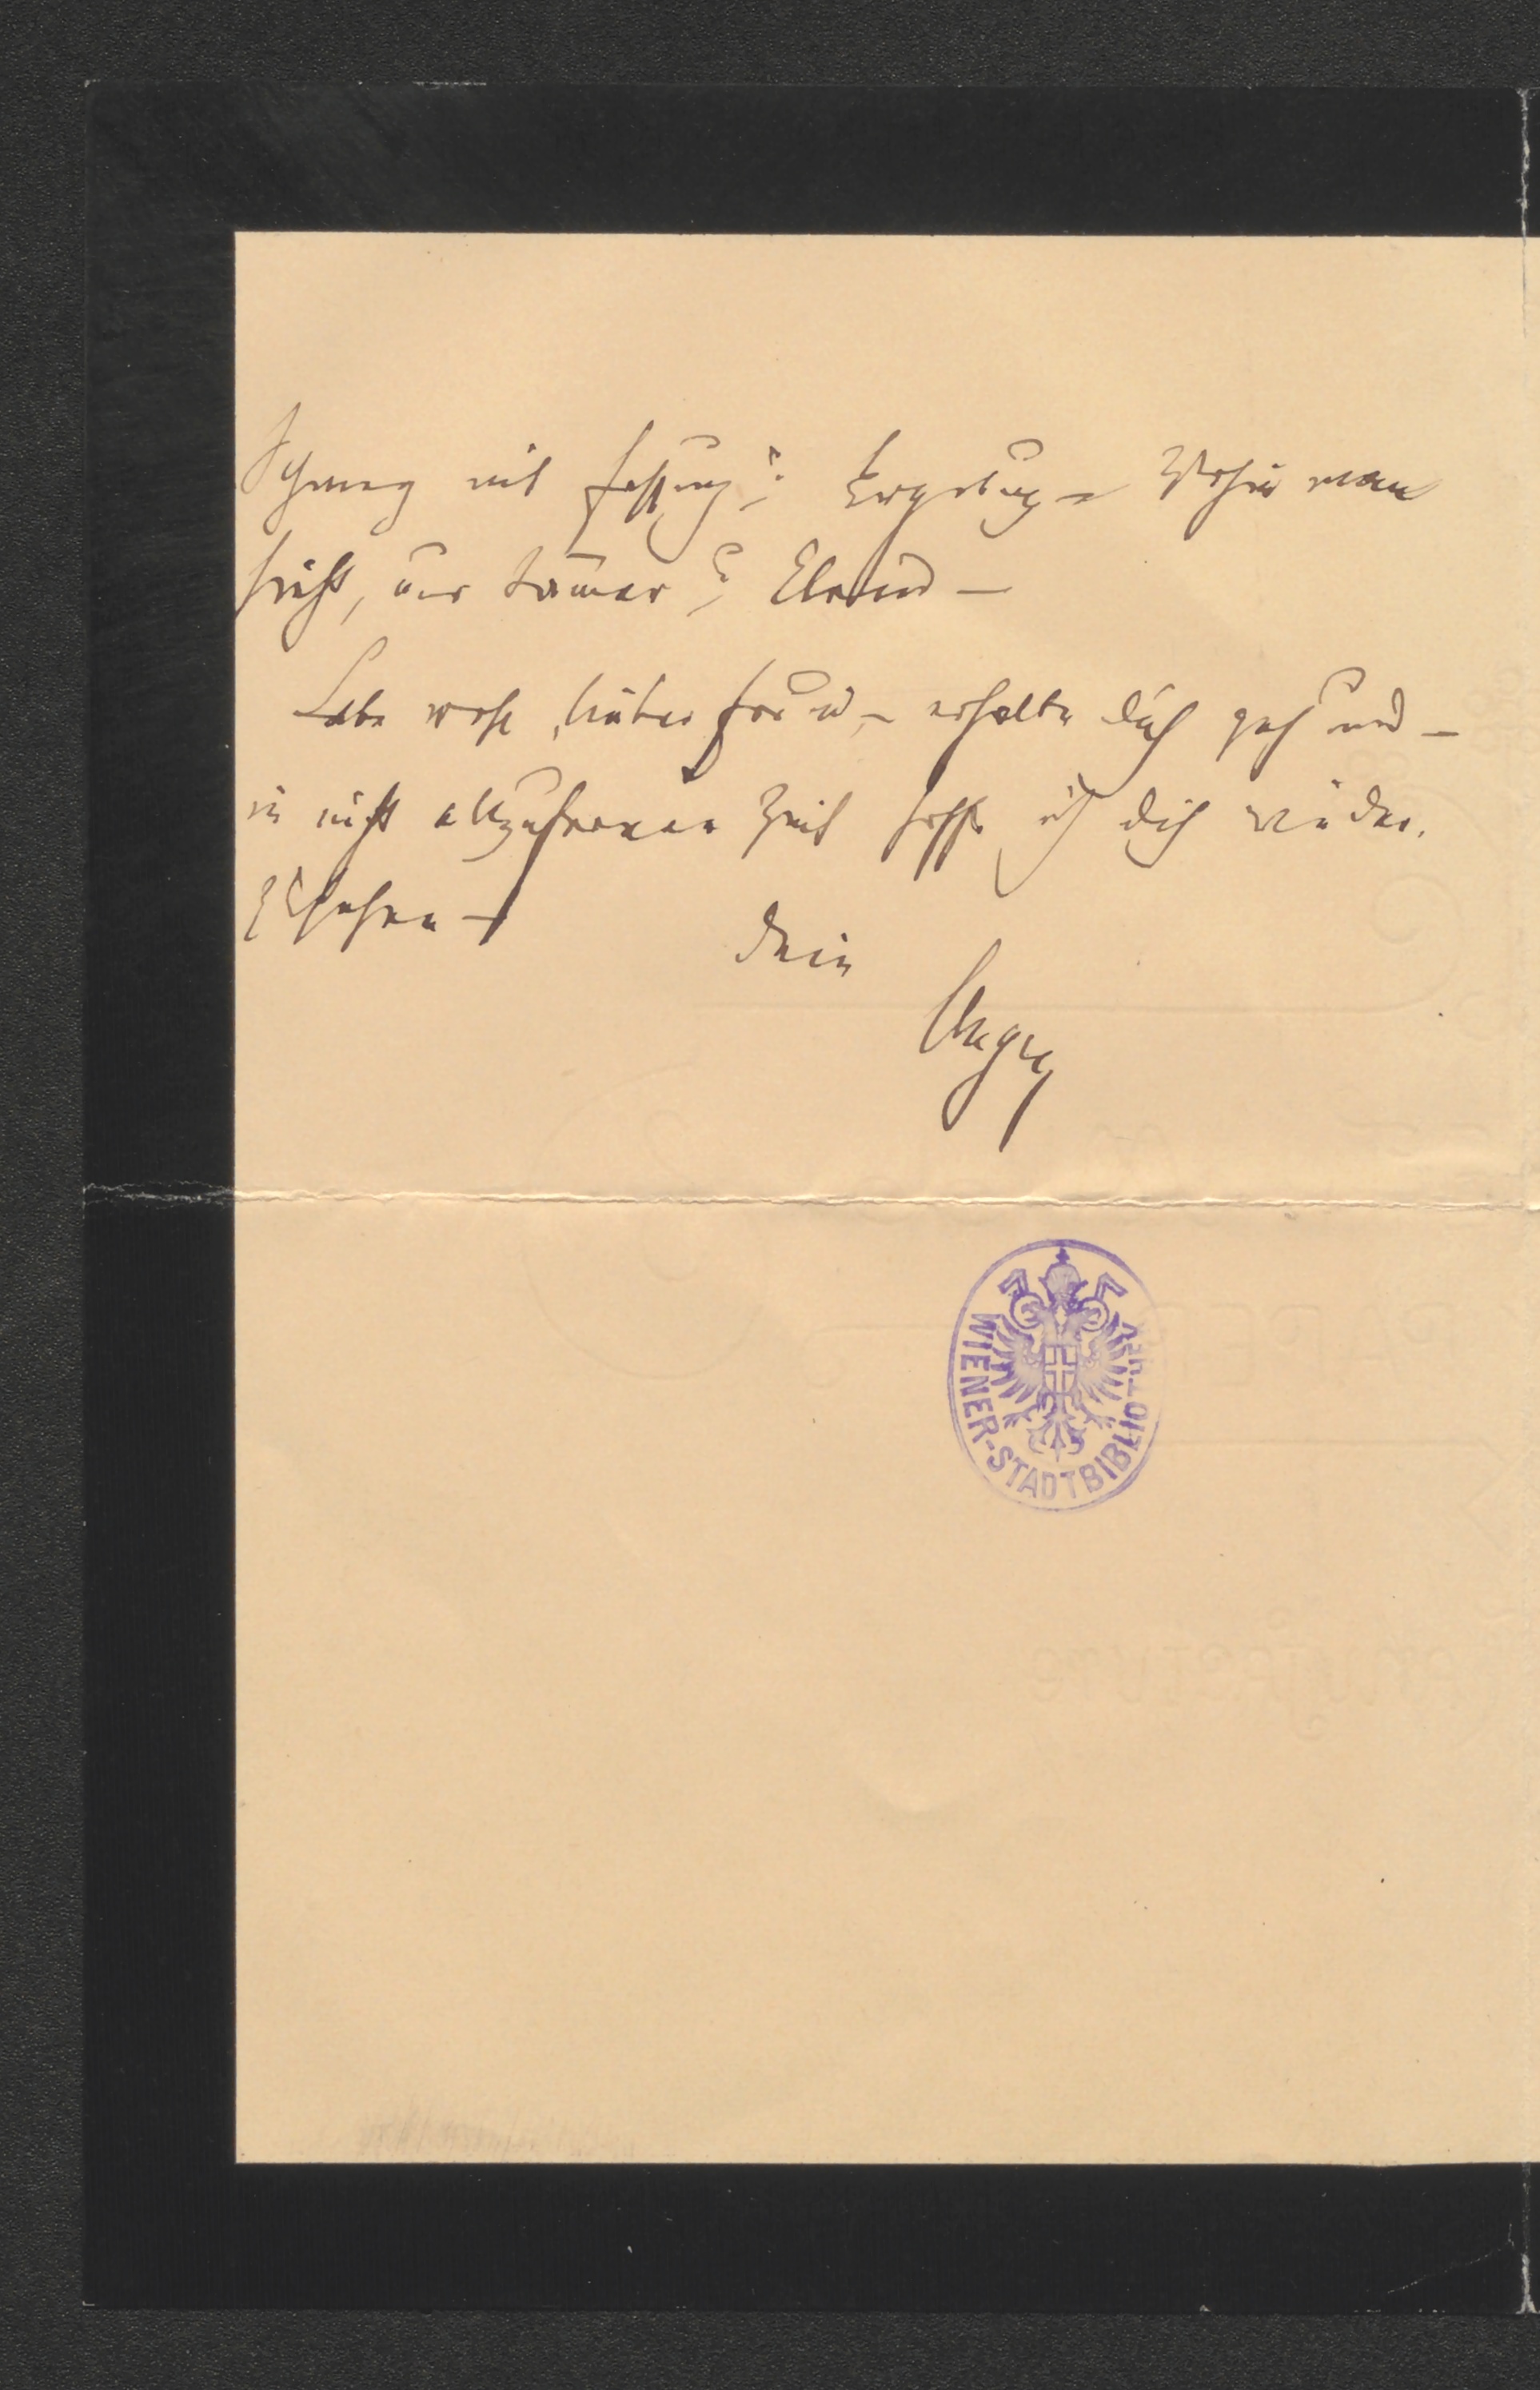 Schmerz mit Fassung & Ergebung – Wohin man
sieht, nur Jammer & Elend –
Lebe wohl, lieber Freund, – erhalte dich gesund –
in nicht allzuferner Zeit hoffe ich dich wieder
zusehen –
Dein
WIENER-STADTBIBLIOTHEK